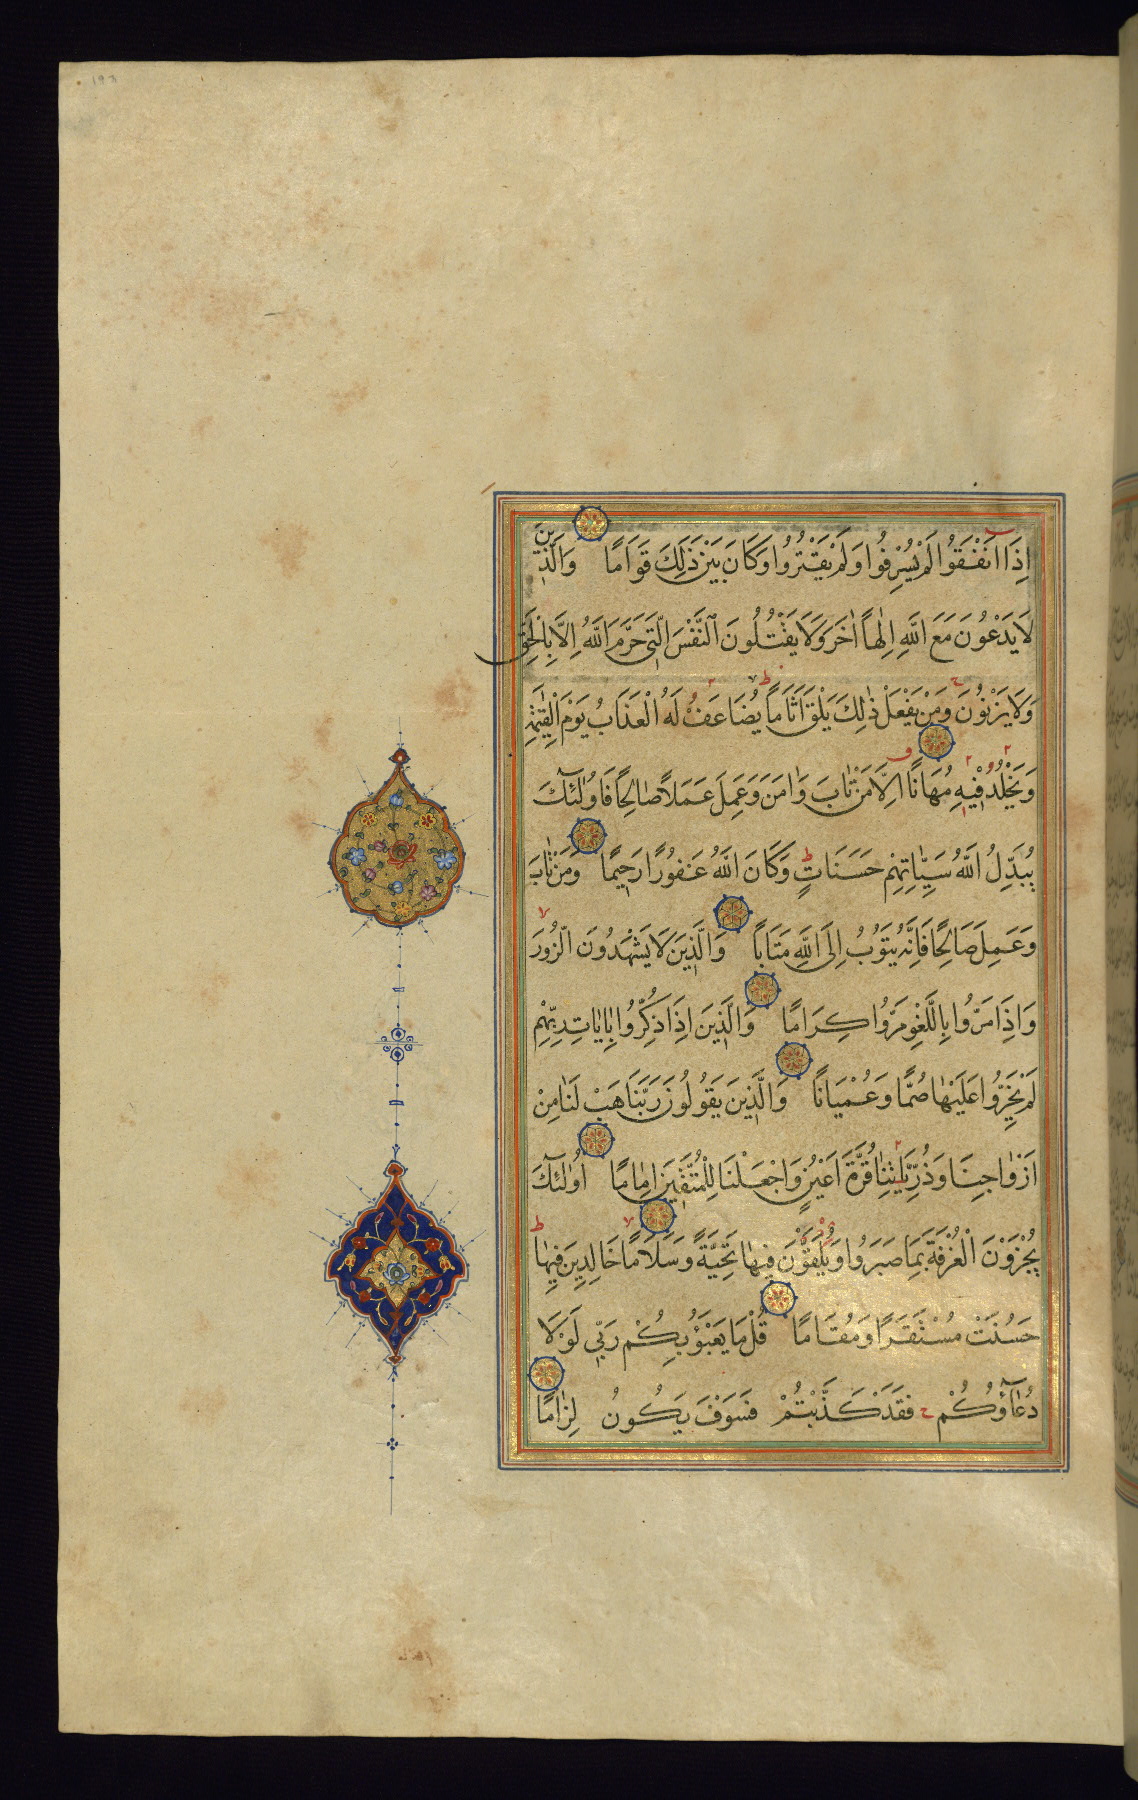 اِذَا اَنْفَقُوا لَمْ يُسْرِفُوا وَلَمْ يَقْتُرُوا وَكَانَ بَيْنَ ذٰلِكَ قَوَامًا وَالَّذِينَ
لَا يَدْعُونَ مَعَ اللّٰهِ اِلٰهًا اٰخَرَ وَلَا يَقْتُلُونَ النَّفْسَ الَّتِي حَرَّمَ اللّٰهُ اِلَّا بِالْحَقِّ
وَلَا يَزْنُونَ وَمَنْ يَفْعَلْ ذٰلِكَ يَلْقَ اَثَامًا يُضَاعَفْ لَهُ الْعَذَابُ يَوْمَ الْقِيٰمَةِ
وَيَخْلُدْ فِيهِ مُهَانًا اِلَّا مَنْ تَابَ وَاٰمَنَ وَعَمِلَ عَمَلًا صَالِحًا فَاُولٰئِكَ
يُبَدِّلُ اللّٰهُ سَيِّاٰتِهِمْ حَسَنَاتٍ وَكَانَ اللّٰهُ غَفُورًا رَحِيمًا وَمَنْ تَابَ
وَعَمِلَ صَالِحًا فَاِنَّهُ يَتُوبُ اِلَى اللّٰهِ مَتَابًا وَالَّذِينَ لَا يَشْهَدُونَ الزُّورَ
وَاِذَا مَرُّوا بِاللَّغْوِ مَرُّوا كِرَامًا وَالَّذِينَ اِذَا ذُكِّرُوا بِاٰيَاتِ رَبِّهِمْ
لَمْ يَخِرُّوا عَلَيْهَا صُمًّا وَعُمْيَانًا وَالَّذِينَ يَقُولُونَ رَبَّنَا هَبْ لَنَا مِنْ
اَزْوَاجِنَا وَذُرِّيَّاتِنَا قُرَّةَ اَعْيُنٍ وَاجْعَلْنَا لِلْمُتَّقِينَ اِمَامًا اُولٰئِكَ
يُجْزَوْنَ الْغُرْفَةَ بِمَا صَبَرُوا وَيُلَقَّوْنَ فِيهَا تَحِيَّةً وَسَلَامًا خَالِدِينَ فِيهَا
حَسُنَتْ مُسْتَقَرًّا وَمُقَامًا قُلْ مَا يَعْبَؤُا بِكُمْ رَبِّي لَوْلَا
دُعَاؤُكُمْ فَقَدْ كَذَّبْتُمْ فَسَوْفَ يَكُونُ لِزَامًا